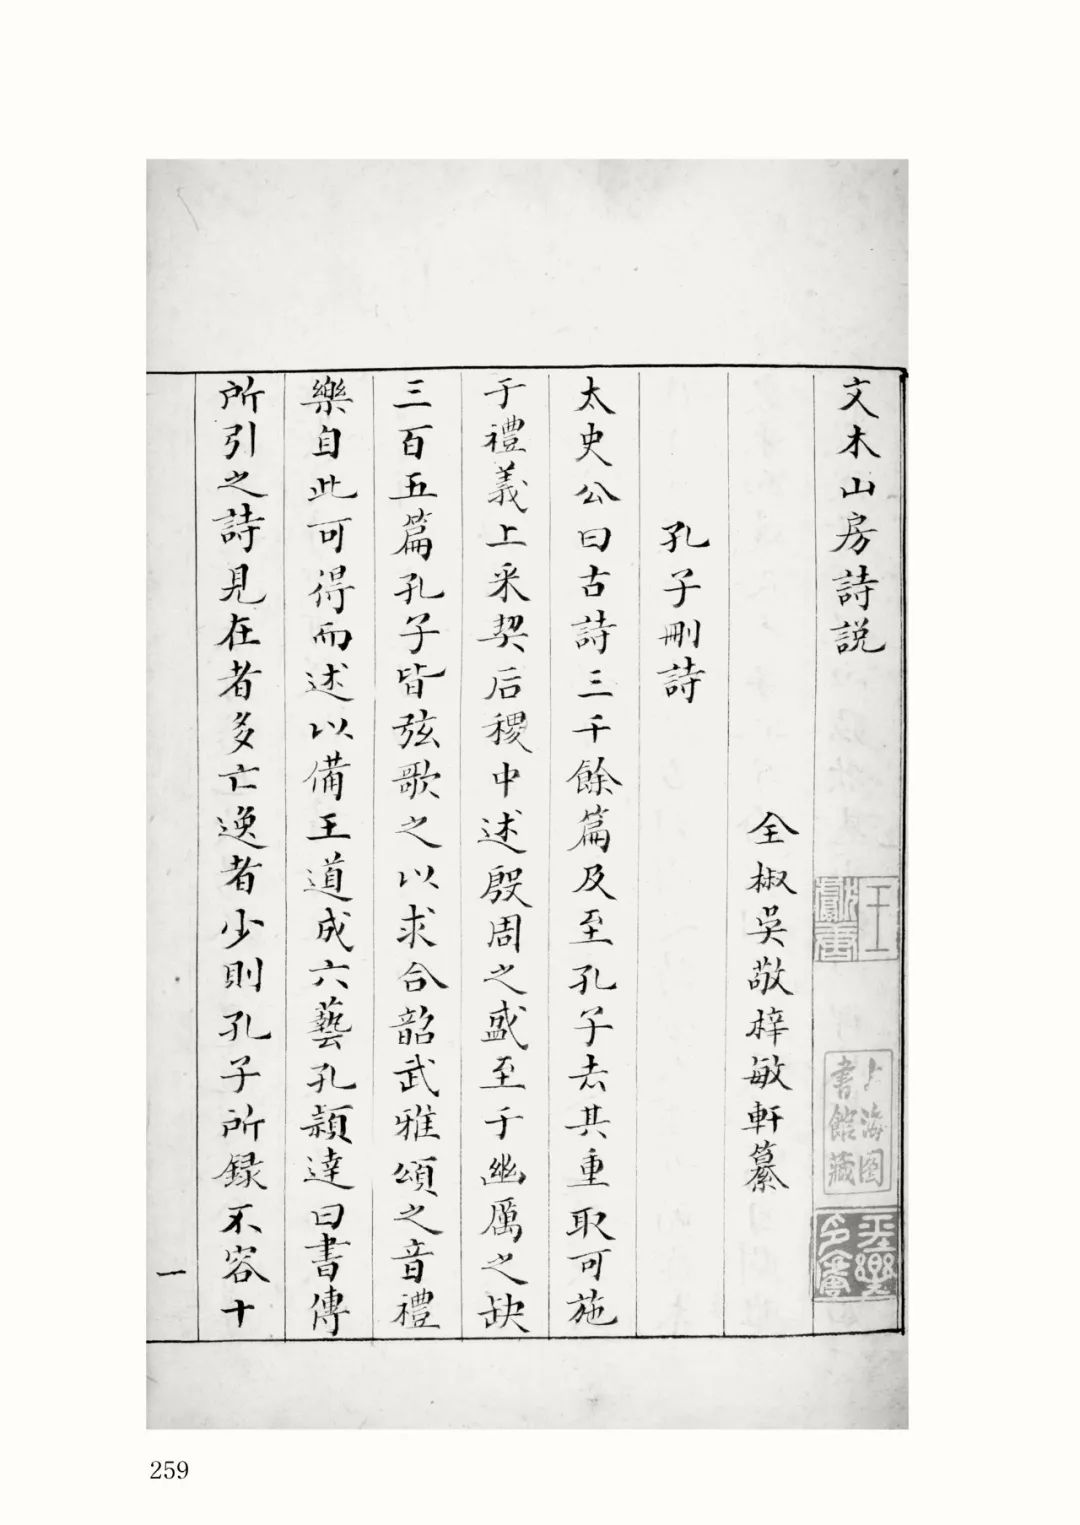 文木山房詩説
全椒吳敬梓敏軒纂
孔子刪詩
太史公曰古詩三千餘篇及至孔子去其重取可施
于禮義上采契后稷中述殷周之盛至于幽厲之缺
三百五篇孔子皆弦歌之以求合韶武雅頌之音禮
樂自此可得而述以備王道成六藝孔穎達曰書傳
所引之詩見在者多亡逸者少則孔子所録不容十
一
上海圖
書館藏
259